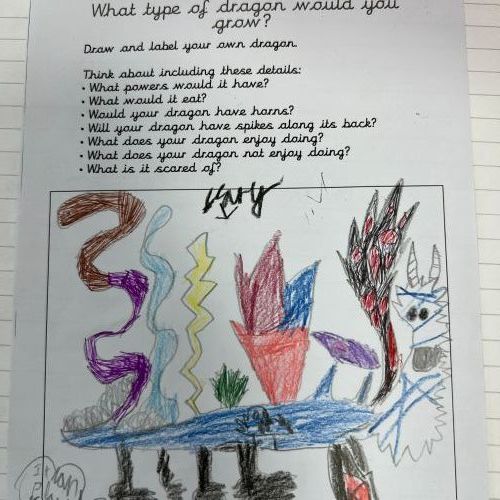 What type of dragon would you
grow?
Draw and label your own dragon.
Think about including these details:
• What powers would it have?
• What would it eat?
• Would your dragon have horns?
• Will your dragon have spikes along its back?
• What does your dragon enjoy doing?
• What does your dragon not enjoy doing?
• What is it scared of?